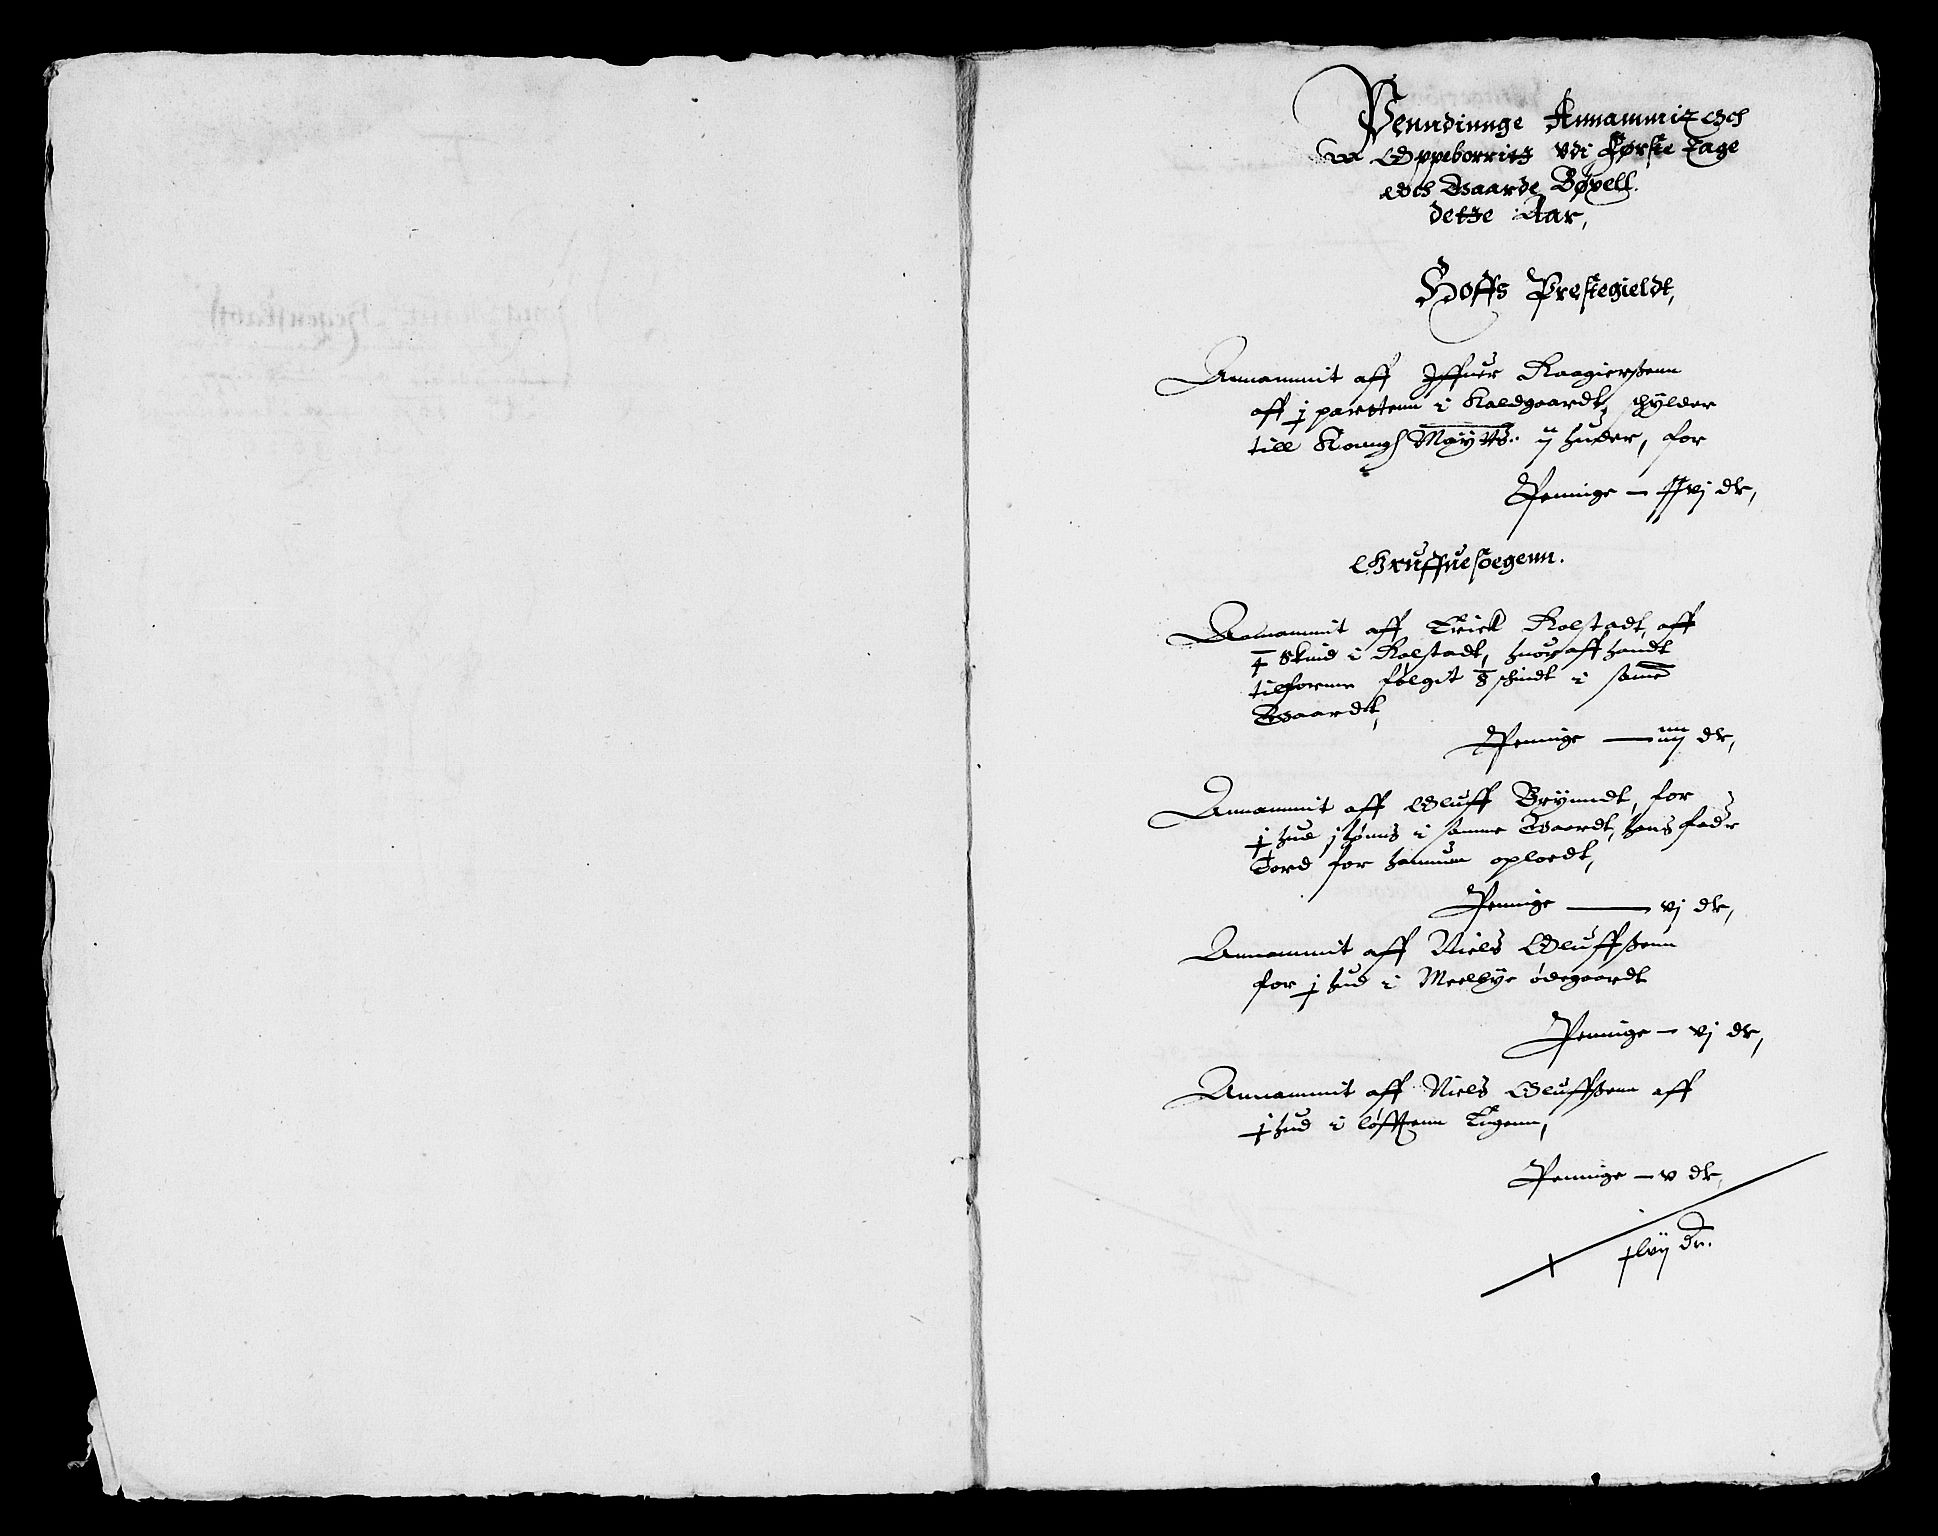 Penndinnge Annammitz och
Oppeborritz vdi Første Tage
och Gaarde Bøxell.
dette Aar,
Hoffs Prestegieldt,
Annammit aff Iffuer Raagierßenn
aff ½ parttenn i Kaldgaardt, schylder
till Konngl Maÿtts. ij huder, for
Penninge — xxvj dr,
Gruffuesoegenn.
Annammit aff Erick Rolstadt, aff
¼ Skind i Rolstadt, huor aff handt
tilfornne følgit ⅛ schindt i samme
Gaardt,
Penninge — iiij dr,
Annammit aff Oluff Brÿnndt, for
½ hud i samme Gaardt, hans fader
Tord for hannum oploedt,
Penninge — vj dr,
Annammit aff Niels Oluffßenn
for ½ hud i Meelbye ødegaardt
Penninge — vj dr,
Annammit aff Niels Oluffßenn aff
½ hud i løfftenn Eigenn,
Penninge — v dr,
xlvij dr.